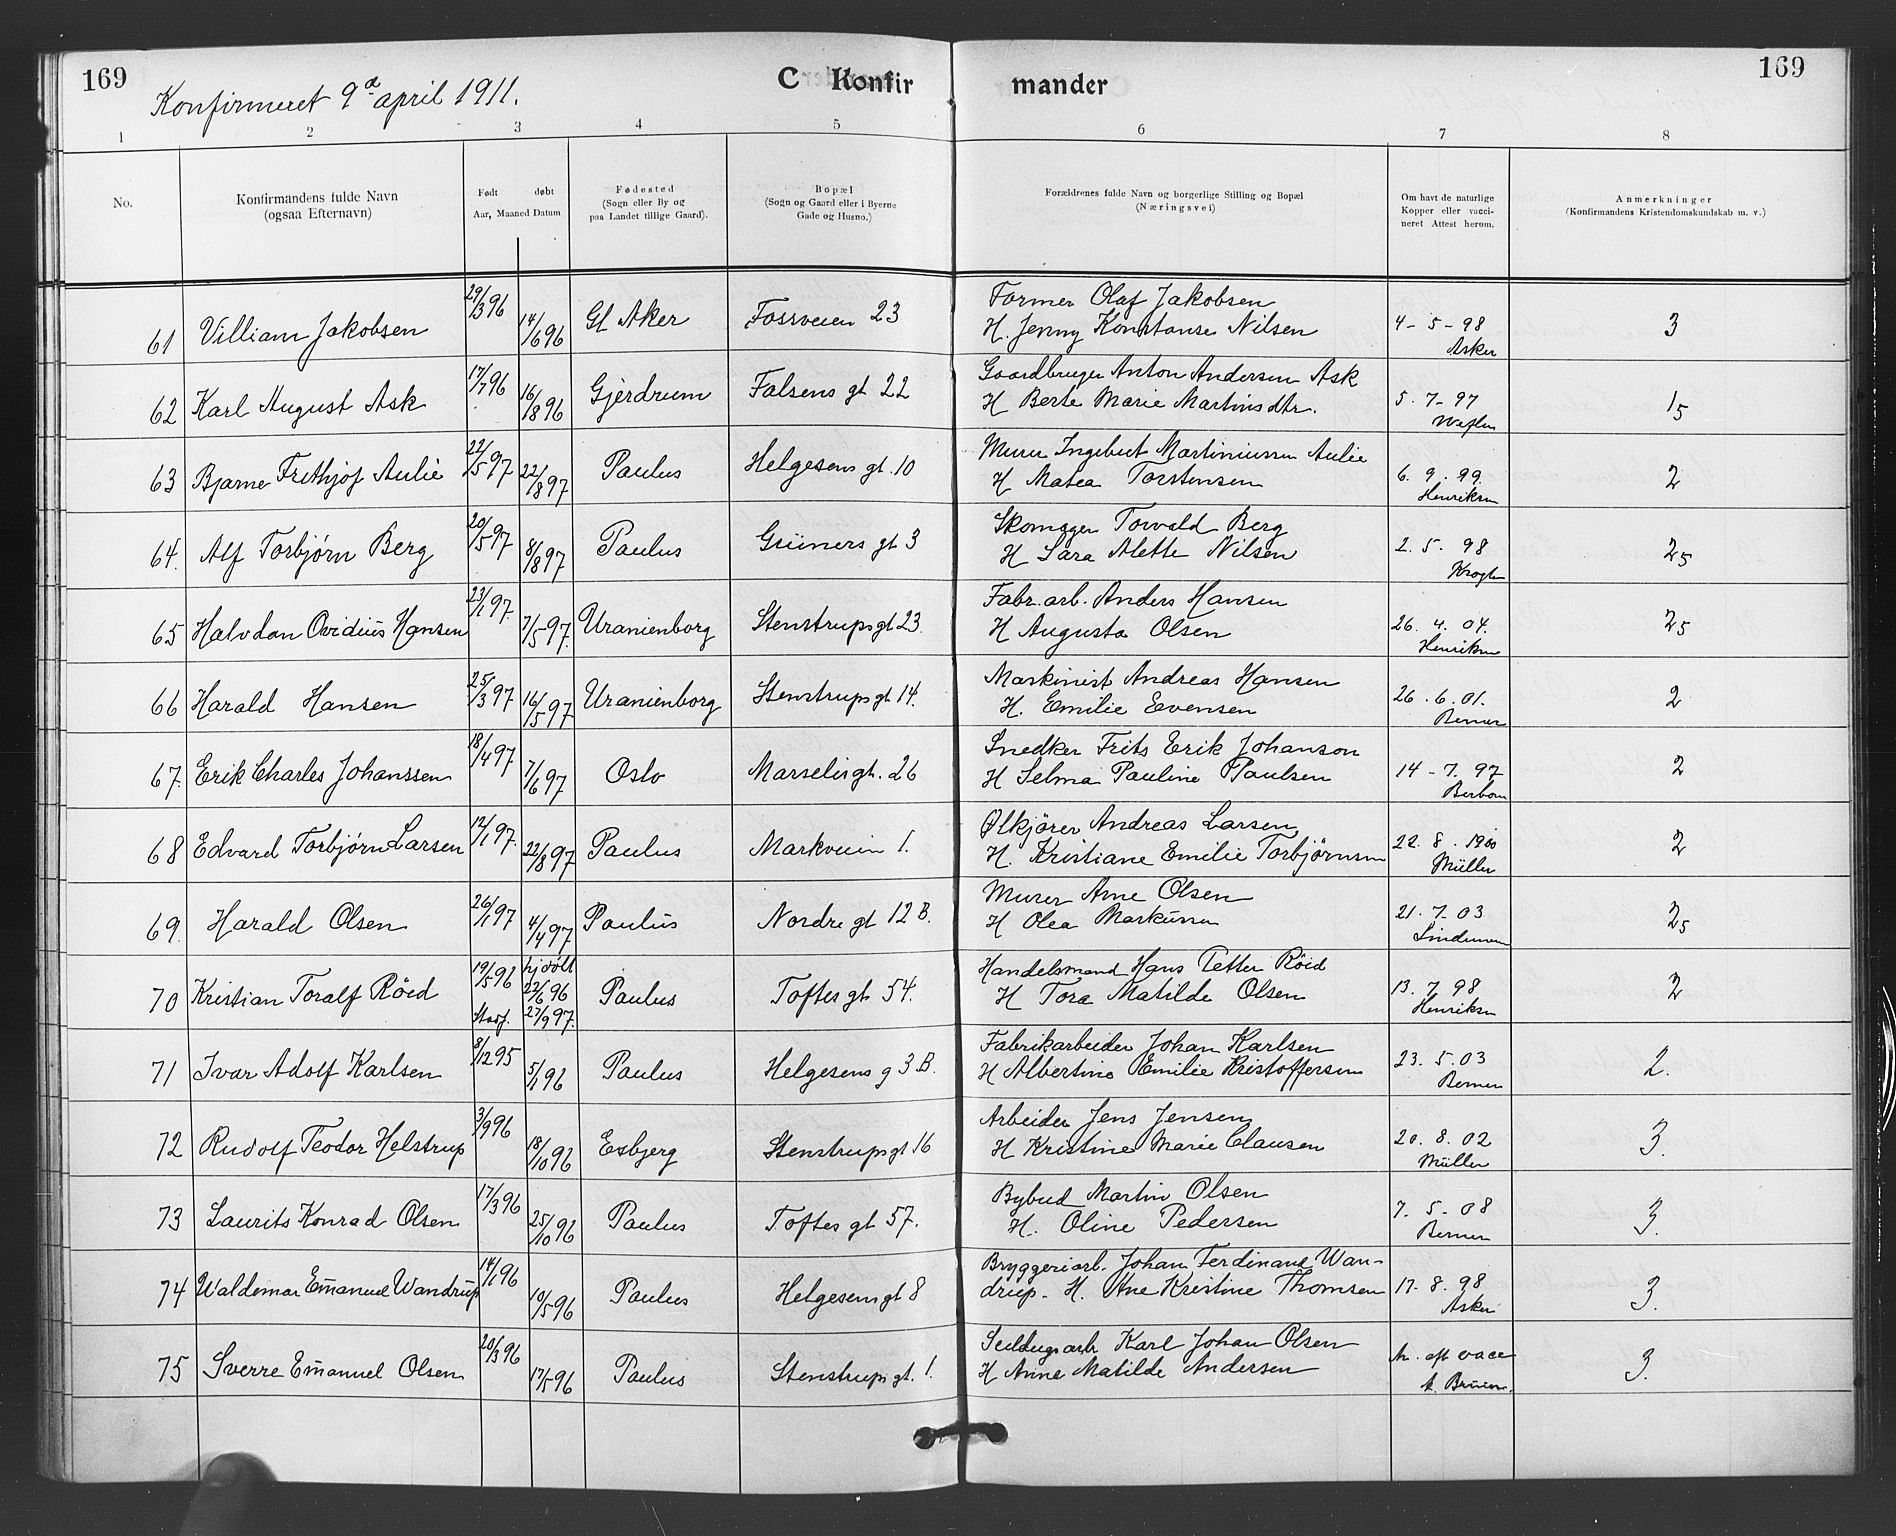 169
C Konfir mander
169
Konfirmeret 9d april 1911.
1 2 3 4 5 6 7 8
No.
Konfirmandens fulde Navn
(ogsaa Efternavn)
Født døbt
Aar, Maaned Datum
Fødested
(Sogn eller By og
paa Landet tillige Gaard).
Bopæl
(Sogn og Gaard eller i Byerne
Gade og Husno.)
Forældrenes fulde Navn og borgerlige Stilling og Bopæl
(Næringsvei)
Om havt de naturlige
Kopper eller vacci-
neret Attest herom.
Anmerkninger
(Konfirmandens Kristendomskundskab m. v.)
61 Villiam Jakobsen 29/3 96 14/6 96 Gl Aker Fossveien 23 Former Olaf Jakobsen
H. Jenny Konstanse Nilsen 4-5-98 3
Asker
62 Karl August Ask 17/7 96 16/8 96 Gjerdrum Falsens gt 22 Gaardbruger Anton Andersen Ask
H Berte Marie Martinsdtr. 5.7-97 15
63 Bjarne Frithjof Aulie 22/5 97 22/8 97 Paulus Helgesens gt. 10 Murer Ingebret Martiniussen Aulie
H Matea Torstensen 6.9.99. 2
Henriksen
64. Alf Torbjørn Berg 20/5 97 8/8 97 Paulus Grüners gt 3 Skomager Torvald Berg
H Sara Alette Nilsen 2.5.98 25
Krogh
65 Halvdan Ovidius Hansen 23/1 97. 7/5 97. Uranienborg Stenstrups gt 23. Fabr. arb. Anders Hansen
H Augusta Olsen 26.4.04. 25
Henriksen
66 Harald Hansen 25/3 97 16/5 97 Uranienborg Stenstrups gt 14. Maskinist Andreas Hansen
H. Emilie Evensen 26.6.01. 2
Berner
67. Erik Charles Johanssen 18/4 97 7/6 97 Oslo Marselisgt. 26 Snedker Frits Erik Johanson
H Selma Pauline Paulsen 14-7.97 2
68 Edvard Torbjørn Larsen 12/1 97. 22/8 97 Paulus Markveien 1. Ølkjører Andreas Larsen
H. Kristiane Emilie Torbjørnsen 22.8.1900 2
Müller
69. Harald Olsen 26/1 97 4/4 97 Paulus Nordre gt 12 B. Murer Arne Olsen
H Olea Markussen 21.7-03 25
Lindeman
70 Kristian Toralf Röed 19/5 96 hjdöbt 22/6 96 Paulus Toftes gt 54. Handelsmand Hans Petter Röed
Stadf. 27/9 97. H Tora Matilde Olsen 13.7.98 2
Henriksen
71 Ivar Adolf Karlsen 8/12 95 5/1 96 Paulus Helgesens g 3 B. Fabrikarbeider Johan Karlsen
H Albertine Emilie Kristoffersen 23.5.03 2.
Berner
72 Rudolf Teodor Helstrup 3/9 96 18/10 96 Esbjerg Stenstrups gt 16 Arbeider Jens Jensen
H Kristine Marie Clausen 20.8.02 3.
Müller
73 Laurits Konrad Olsen 17/3 96 25/10 96 Paulus Toftes gt 57. Bybud Martin Olsen
H. Oline Pedersen 7.5-08 3.
Berner
74 Waldemar Emanuel Wandrup 14/1 96 10/5 96 Paulus Helgesens gt 8 Bryggeriarb. Johan Ferdinand Wan-
drup. H. Ane Kristine Thomsen 17.8.98 3.
Asker
75 Sverre Emanuel Olsen 20/3 96 17/5 96 Paulus Stenstrups gt. 1. Seildugsarb Karl Johan Olsen
H Anne Matilde Andersen vacc 3.